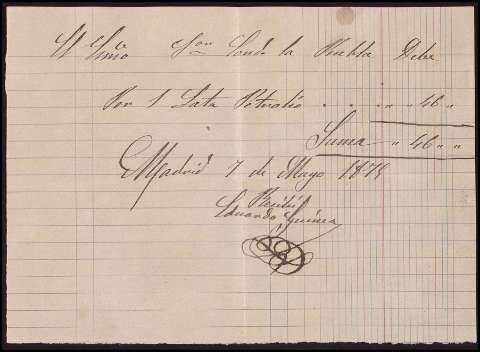 El Exmo Sor Conde la Puebla Debe
Por 1 Lata Petrolio . . . " " 46 "
Suma " 46 " "
Madrid 7 de Mayo 1878
Recibí
Eduardo Guinea